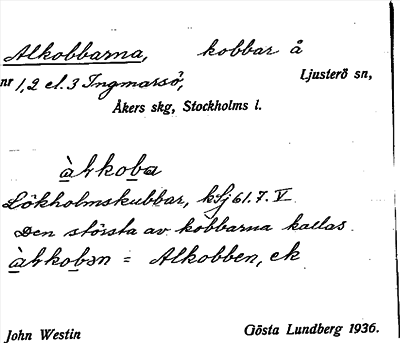 Alkobbarna, kobbar å
nr 1,2 el. 3 Ingmarsö, Ljusterö sn,
Åkers skg, Stockholms l.
àłkoba
Lökholmskubbar, kSj 61.7.V
Den största av kobbarna kallas
àłkobən = Alkobben, ek
John Westin Gösta Lundberg 1936.